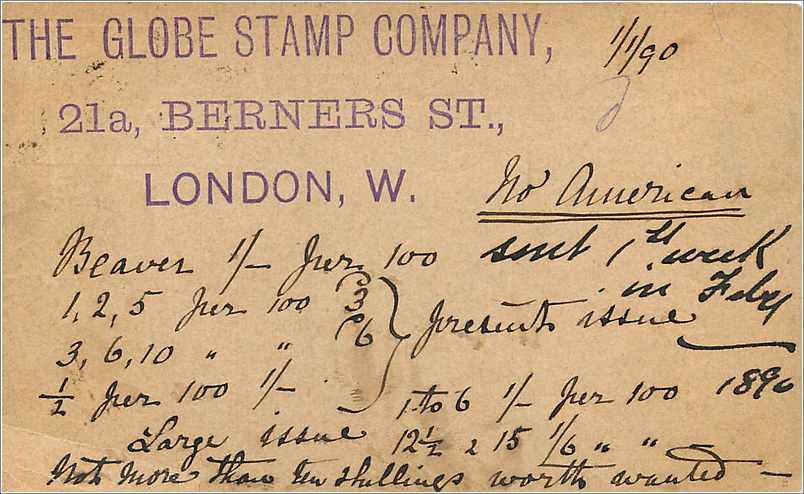 THE GLOBE STAMP COMPANY,
1/1/90
21a, BERNERS ST.,
LONDON, W.
No American
Beaver 1/- per 100
sent 1st week
in Feby
1890
1, 2, 5 per 100 3
3, 6, 10 " " 6
present issue
½ per 100 1/-
1 to 6 1/- per 100
Large issue 12½ 15 1/6 " "
Not more than ten shillings worth wanted -